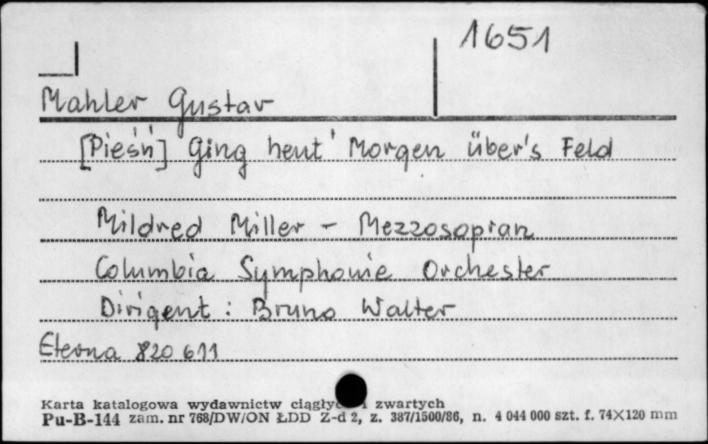 1651
Mahler Gustav
[Pieśń] Ging heut' Morgen über's Feld
Mildred Miller - Mezzosopran
Columbia Symphonie Orchester
Dirigent: Bruno Walter
Eterna 820 611
Karta katalogowa wydawnictw ciągłyc zwartych
Pu-B-144 zam. nr 768/DW/ON ŁDD Z-d 2, z. 387/1500/86, n. 4 044 000 szt. f. 74×120 mm